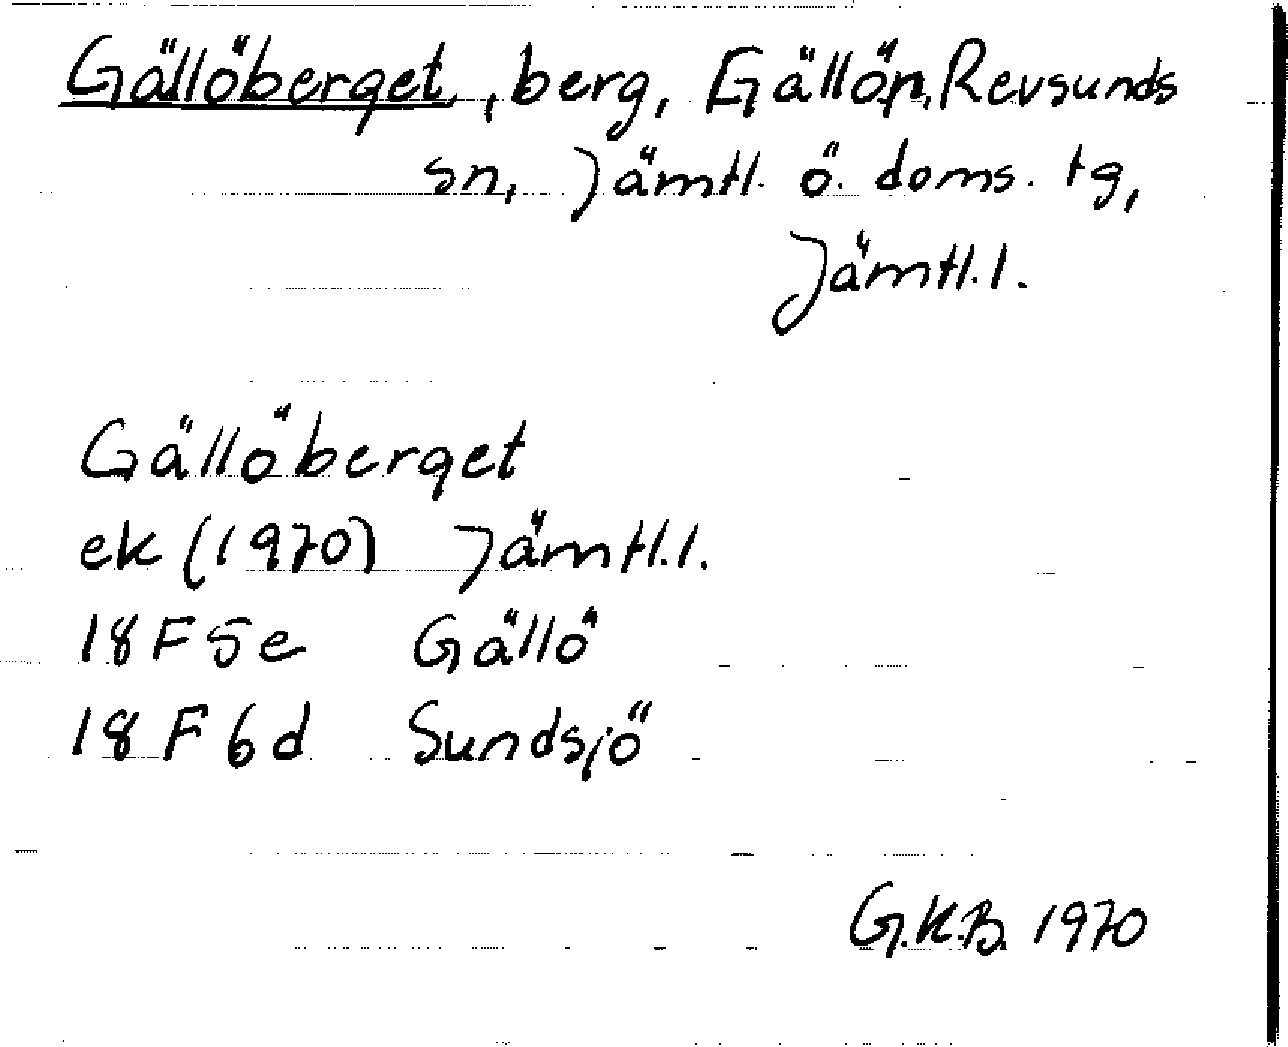 Gällöberget, berg, Gällön, Revsunds
sn, Jämtl. ö. doms. tg,
Jämtl. l.
Gällöberget
ek (1970) Jämtl. l.
18 F 5 e Gällö
18 F 6 d Sundsjö
G.K.B. 1970